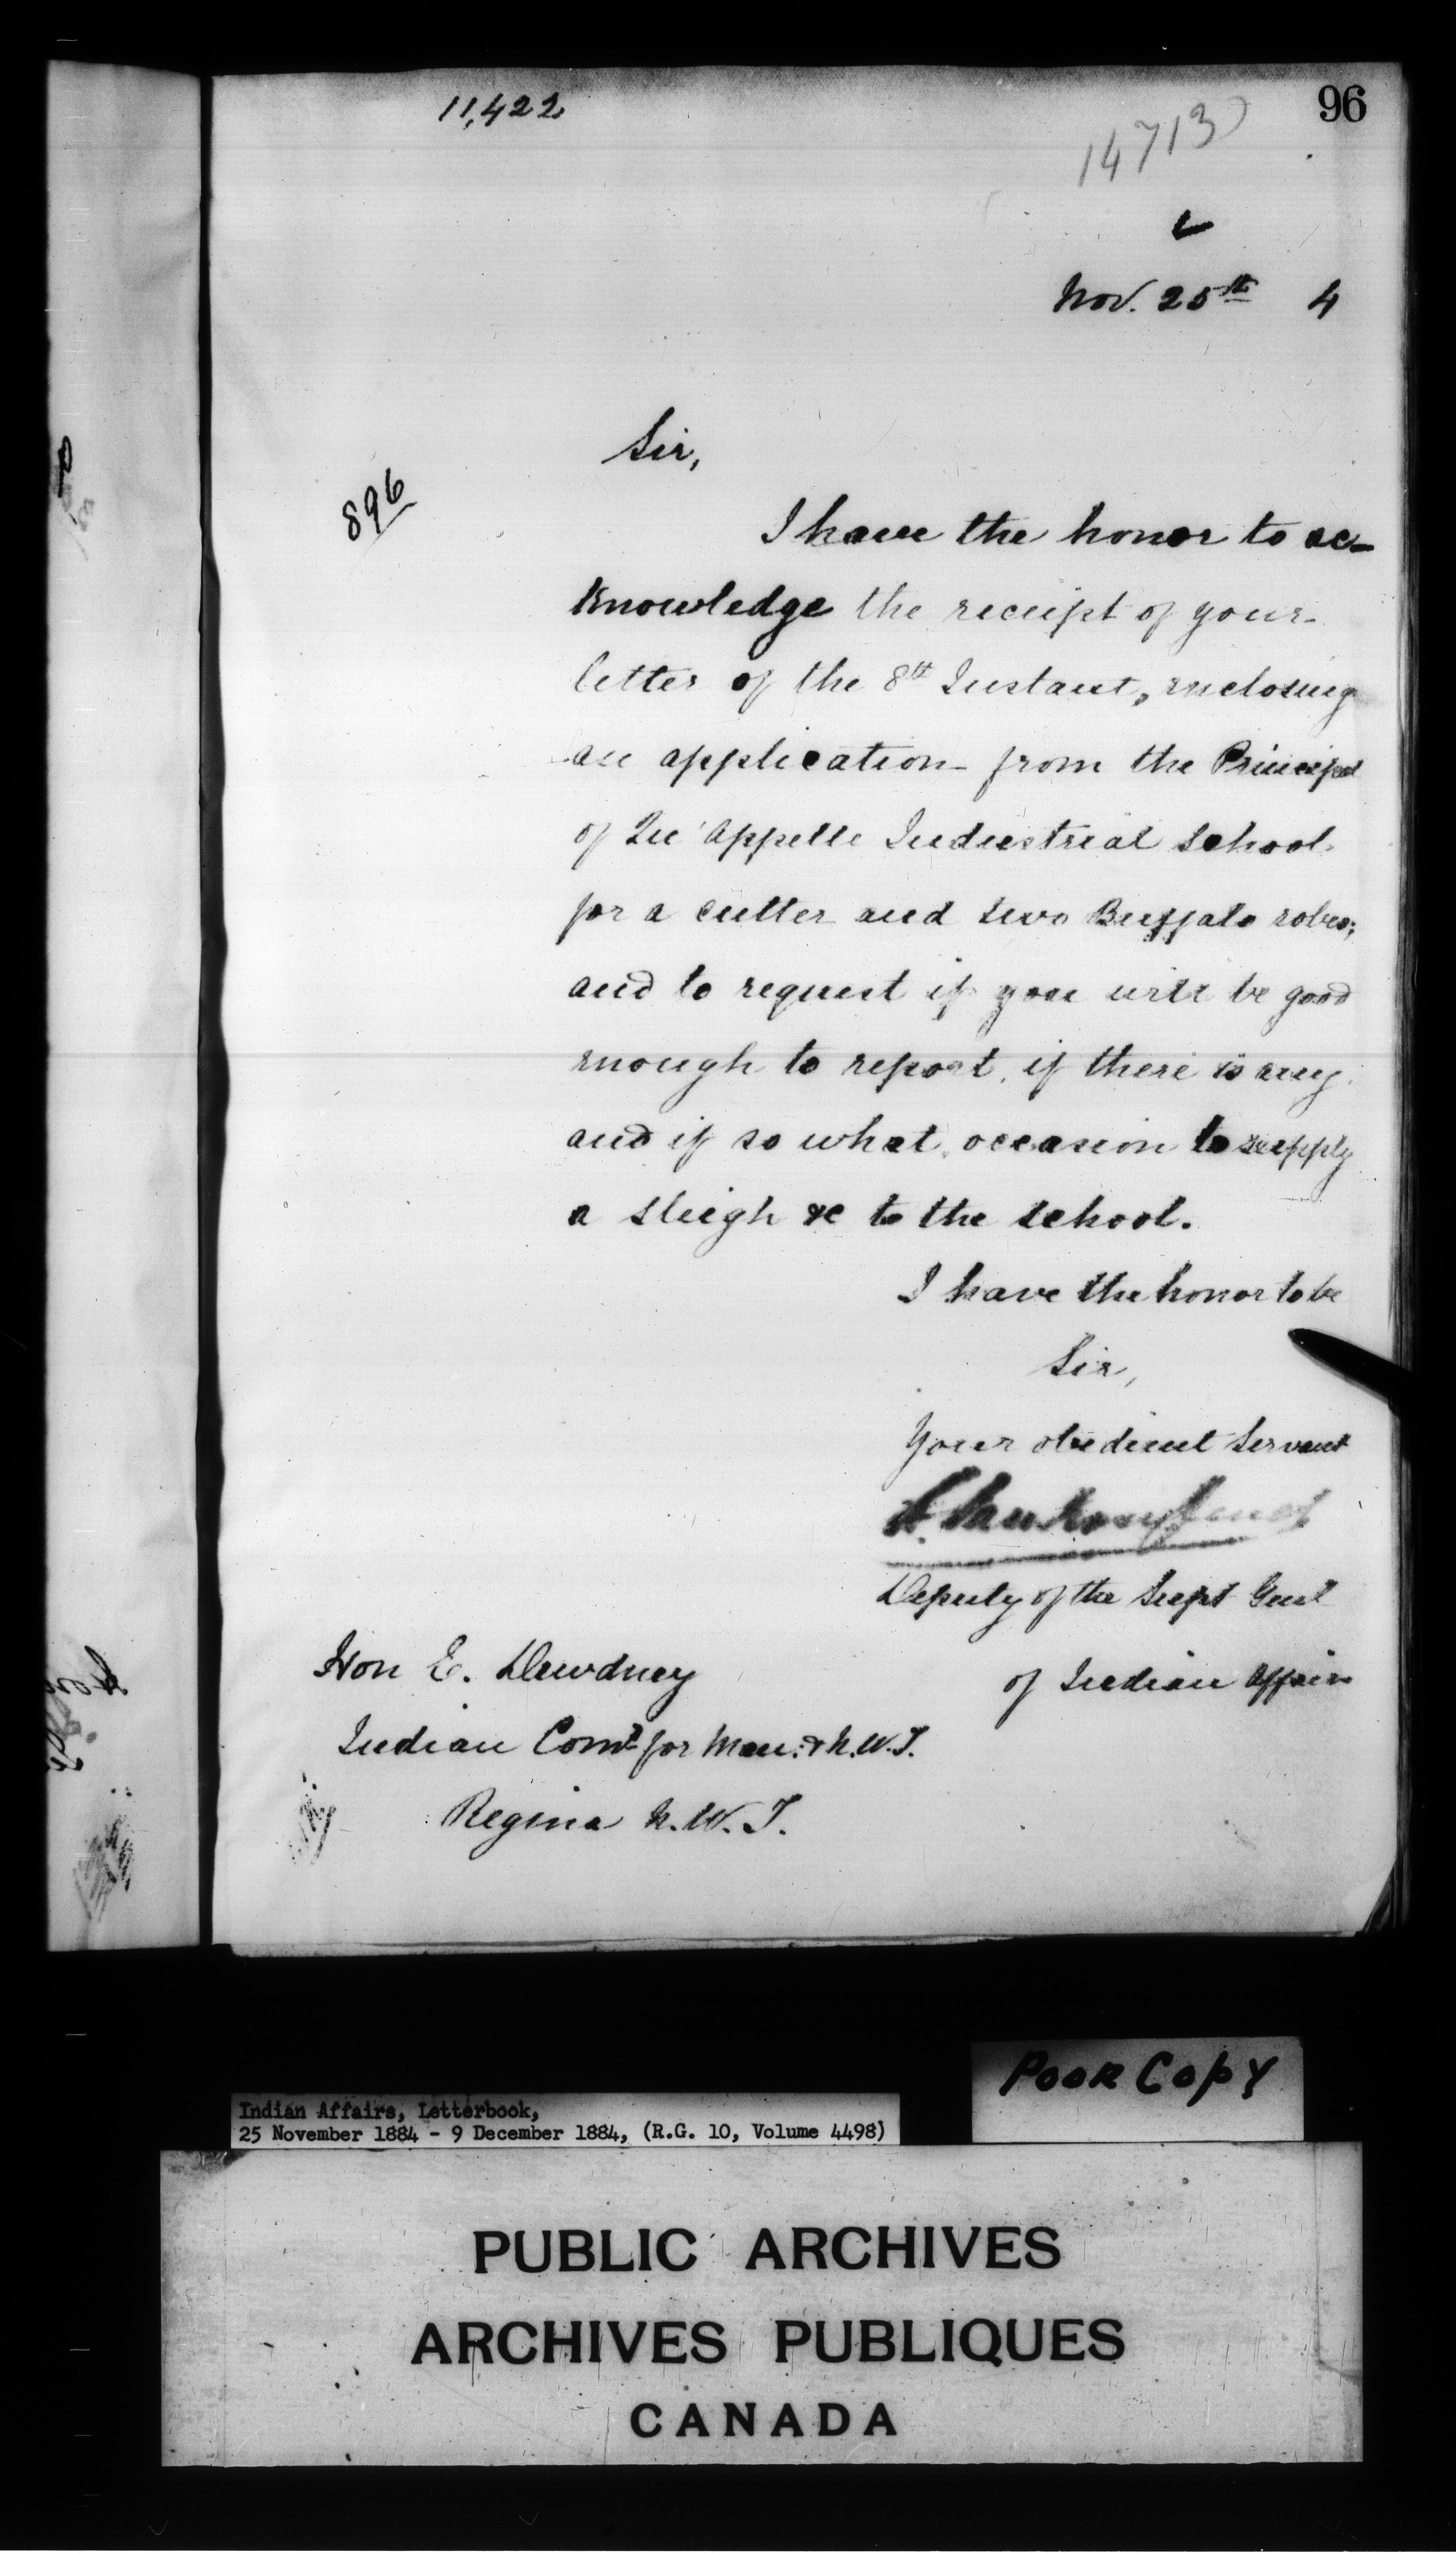 11,422
96
14713
Nov. 25th 4
Sir,
896
I have the honor to ac-
knowledge the receipt of your
letter of the 8th Instant, enclosing
an application from the Principal
of Qu'Appelle Industrial School
for a cutter and two Buffalo robes;
and to request if you will be good
enough to report, if there is any
and if so what, occasion to supply
a sleigh &c to the school.
I have the honor to be
Sir,
Your obedient Servant
L. Vankoughnet
Deputy of the Supt Genl
of Indian Affairs
Hon E. Dewdney
Indian Comr for Man: & N.W.T.
Regina N.W.T.
POOR COPY
Indian Affairs, Letterbook,
25 November 1884 - 9 December 1884, (R.G. 10, Volume 4498)
PUBLIC ARCHIVES
ARCHIVES PUBLIQUES
CANADA